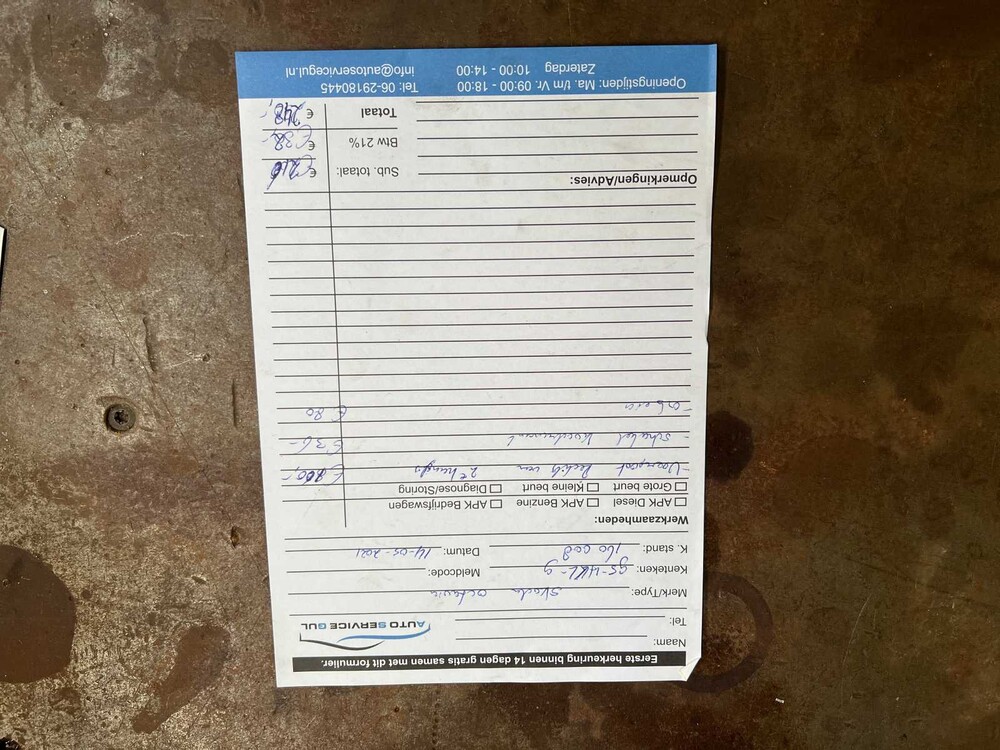 Eerste herkeuring binnen 14 dagen gratis samen met dit formulier.
Naam:
Tel:
AUTO SERVICE GUL
Merk/Type: Skoda octavia
Kenteken: Meldcode:
K. stand: 160 008 Datum: 14-05-2021
Werkzaamheden:
APK Diesel APK Benzine APK Bedrijfswagen
Grote beurt Kleine beurt Diagnose/Storing
van 2e hands
- schakel € 36,-
€ 80
Opmerkingen/Advies:
Sub. totaal: €
Btw 21% € € 38,-
Totaal €
Openingstijden: Ma. t/m Vr. 09:00 - 18:00 Tel: 06-29180445
Zaterdag 10:00 - 14:00 info@autoservicegul.nl